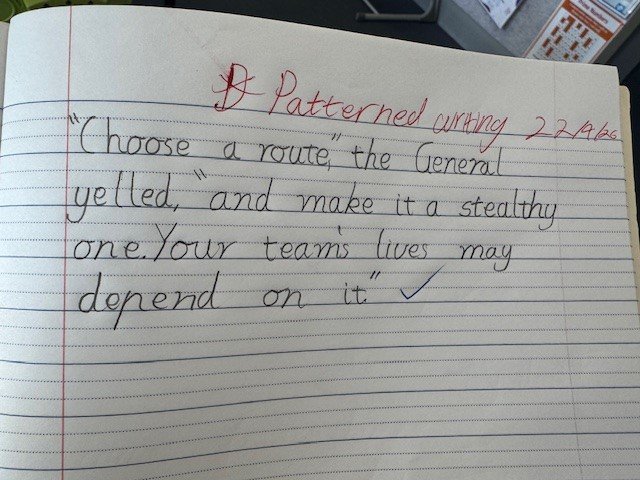 Patterned writing 22/9/26
"Choose a route," the General
yelled, "and make it a stealthy
one. Your team's lives may
depend on it."